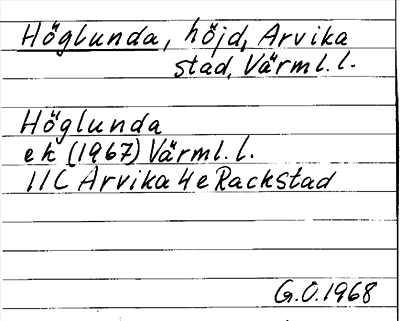 Höglunda, höjd, Arvika
stad, Värml.l.
Höglunda
ek (1967) Värml.l.
11C Arvika 4e Rackstad
G.O.1968